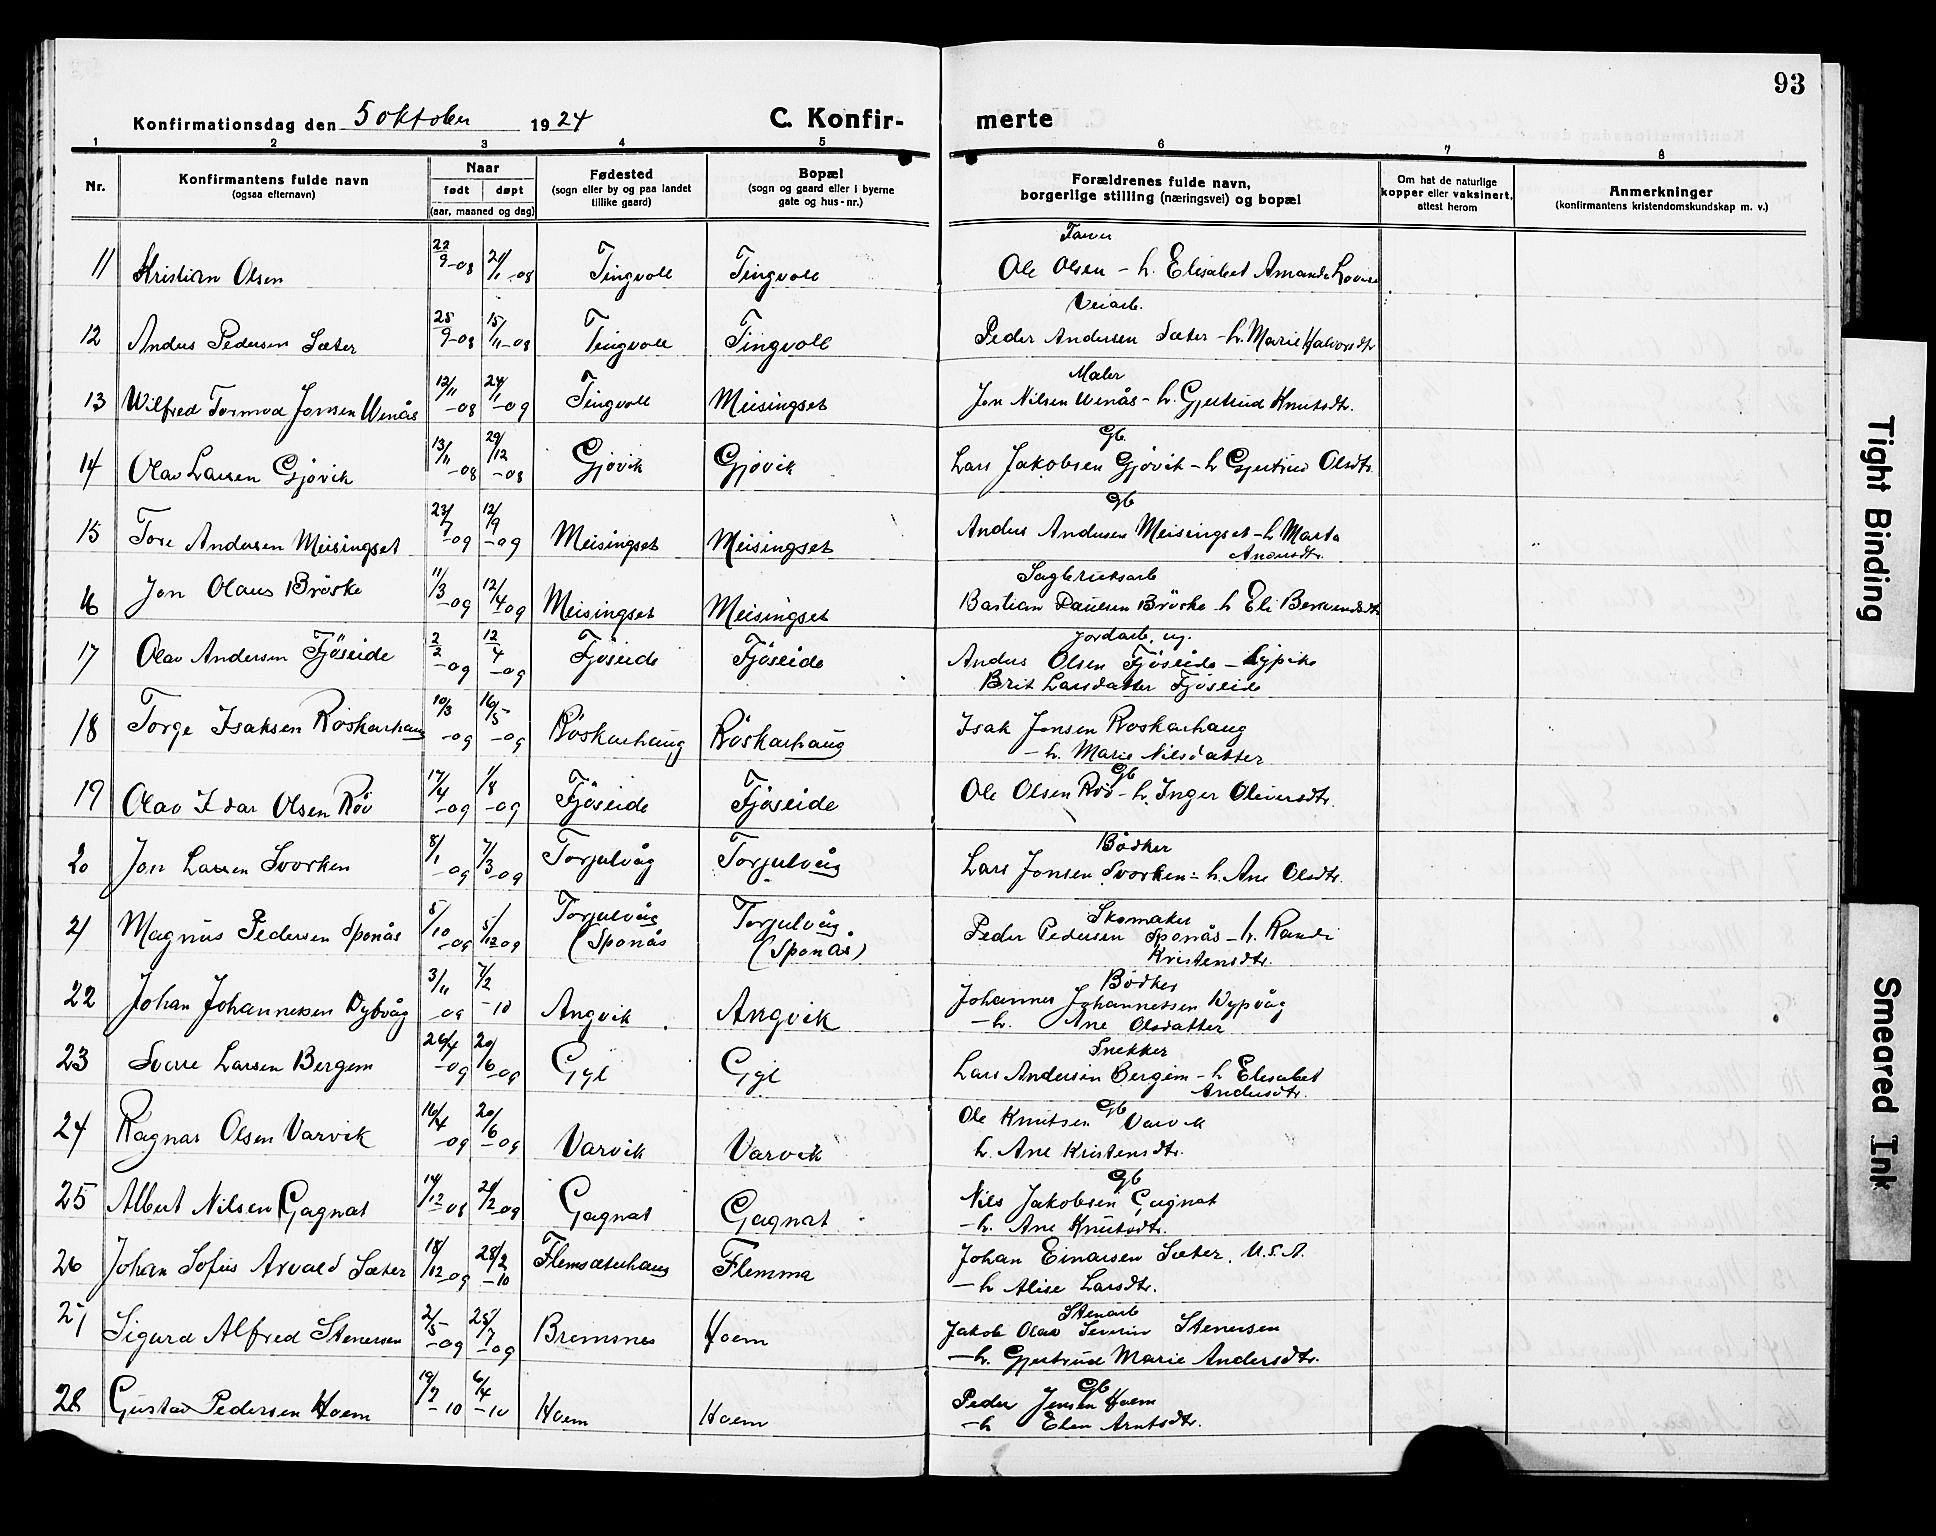 93
Konfirmationsdag den 5 oktober 1924 C. Konfir- merte
1 2 3 4 5 6 7 8
Nr. Konfirmantens fulde navn (ogsaa efternavn) Naar født døpt (aar, maaned og dag) Fødested (sogn eller by og paa landet tillike gaard) Bopæl (sogn og gaard eller i byerne gate og hus-nr.) Forældrenes fulde navn, borgerlige stilling (næringsvei) og bopæl Om hat de naturlige kopper eller vaksinert, attest herom Anmerkninger (konfirmantens kristendomskundskap m. v.)
11 Kristian Olsen 22/9-08 21/11-08 Tingvoll Tingvoll
Ole Olsen - h. Elisabet Amanda Lovise
12 Anders Pedersen Sæter 25/9-08 15/11-08 Tingvoll Tingvoll Veiarb.
Peder Andersen Sæter - h. Marie Halvorsdtr
13 Wilfred Tormod Jonsen Wenås 12/11-08 24/1-09 Tingvoll Meisingset Maler
Jon Nilsen Wenås - h. Gjertrud Knutsdtr.
14 Olav Larsen Gjøvik 13/11-08 29/12-08 Gjøvik Gjøvik Gb.
Lars Jakobsen Gjøvik - h Gjertrud Olsdtr.
15 Tore Andersen Meisingset 23/7-09 12/9-09 Meisingset Meisingset Gb
Anders Andersen Meisingset - h Marta
Andersdtr.
16 Jon Olaus Brøske 11/3-09 12/4-09 Meisingset Meisingset Sagbruksarb
Bastian Paulsen Brøske - h Eli
17 Olav Andersen Fjøseide 2/2-09 12/4-09 Fjøseide Fjøseide Jordarb. ug.
Anders Olsen Fjøseide - & pike
Brit Larsdatter Fjøseide
18 Torge Isaksen Røskarhaug 10/3-09 16/5-09 Røskarhaug Røskarhaug
Isak Jonsen Røskarhaug
- h. Marie Nilsdatter
19 Olav Idar Olsen Røv 17/4-09 1/8-09 Fjøseide Fjøseide Gb
Ole Olsen Røv - h. Inger Oliversdtr.
20 Jon Larsen Svorken 8/1-09 7/3-09 Torjulvåg Torjulvåg Bødker
Lars Jonsen Svorken - h. Ane Olsdtr.
21 Magnus Pedersen Sponås 5/10-09 5/12-09 Torjulvåg (Sponås Torjulvåg (Sponås) Skomaker
Peder Pedersen Sponås - h. Randi
Kristensdtr.
22 Johan Johannessen Dybvåg 3/11-09 7/2-10 Angvik Angvik Bødker
Johannes Johannessen Dypvåg
- h. Ane Olsdatter
23 Sverre Larsen Bergem 26/4-09 20/6-09 Gyl Gyl Snekker
Lars Andersen Bergem - h Elisabet
Andersdtr.
24 Ragnar Olsen Varvik 16/4-09 20/6-09 Varvik Varvik Gb
Ole Knutsen Varvik
h. Ane Kristensdtr.
25 Albert Nilsen Gagnat 14/12-08 21/2-09 Gagnat Gagnat Gb
Nils Jakobsen Gagnat
- h. Ane Knutsdtr.
26 Johan Sofus Arvald Sæter 18/12-09 28/2-10 Flemsæterhaug Flemma
Johan Einarsen Sæter, U.S.A.
- h Alise Larsdtr.
27 Sigurd Alfred Stenersen 2/5-09 25/7-09 Bremsnes Hoem Stenarb
Jakob Olav Severin Stenersen
- h. Gjertrud Marie Andersdtr.
28 Gustav Pedersen Hoem 19/2-10 6/4-10 Hoem Hoem Gb
Peder Jensen Hoem
- h Elen Arntsdtr.
Tight Binding
Smeared Ink